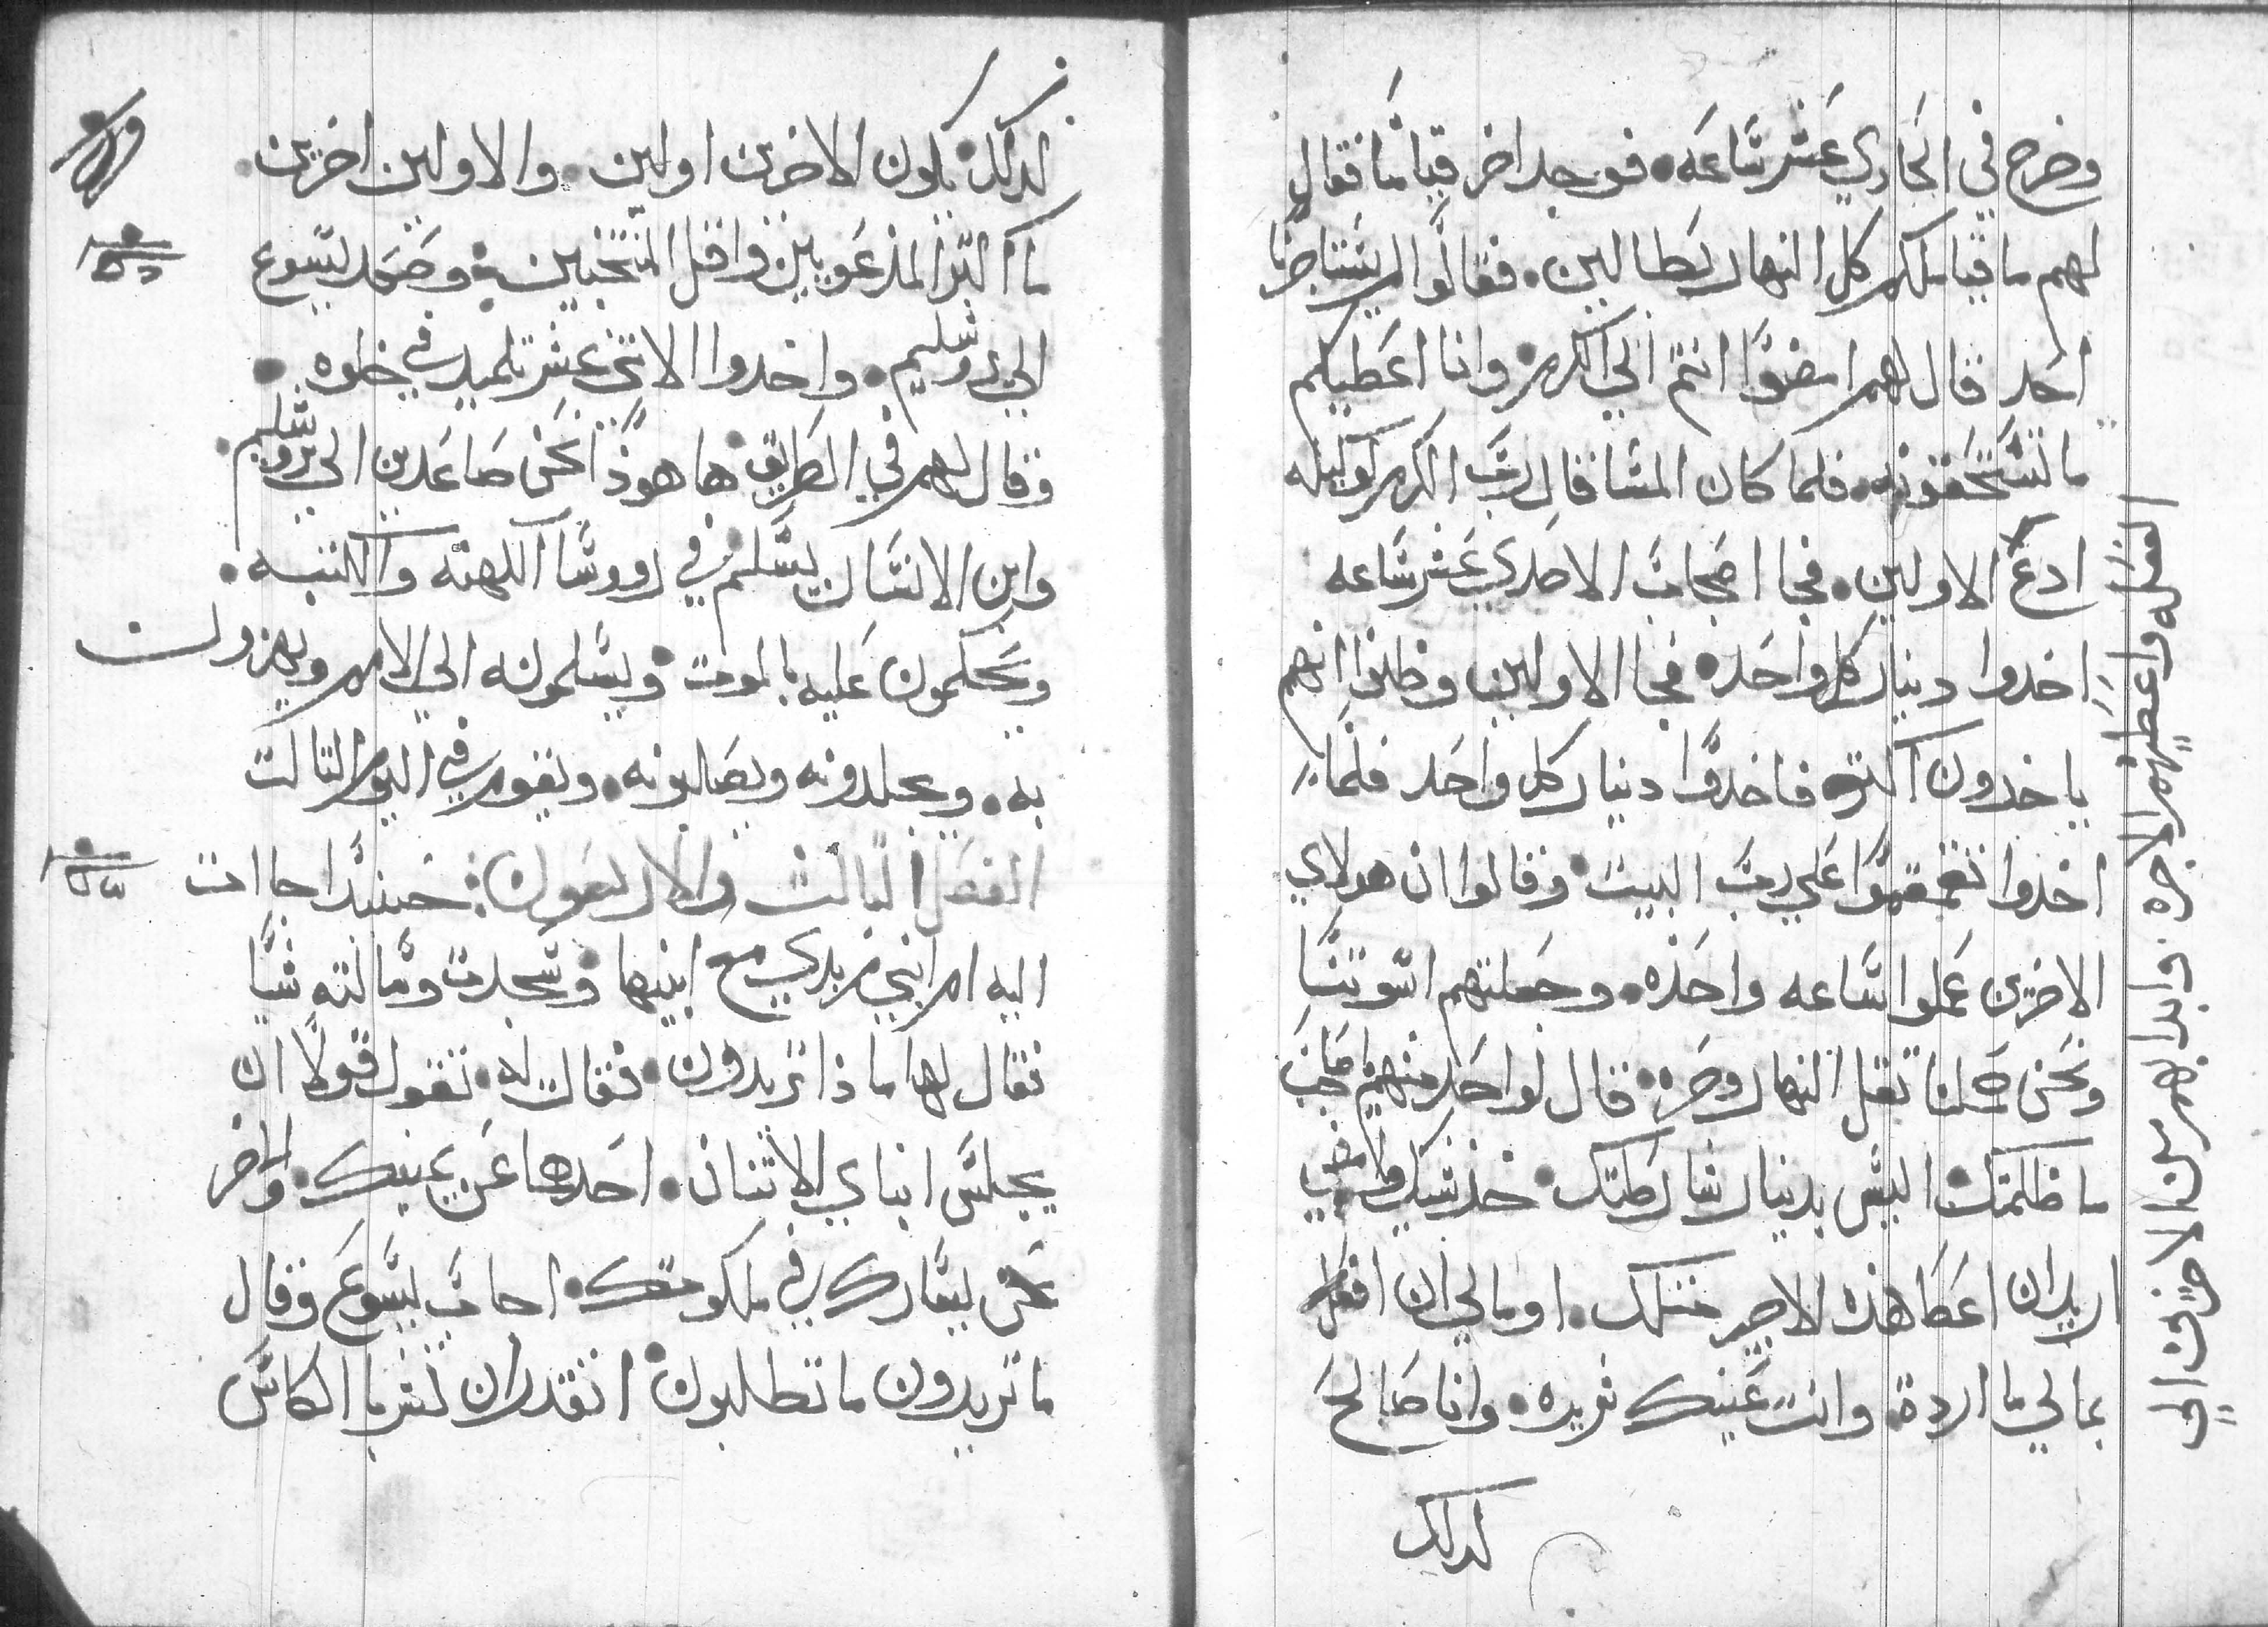 وخرج في الحادي عشر ساعه فوجد اخر قيامًا فقال
لهم ما قيامكم كل النهار بطالين. فقالوا لم يستاجرنا
احد قال لهم امضوا انتم الي الكرم وانا اعطيكم
ما تستحقونه فلما كان المسا قال رب الكرم لوكيله
ادع الاولين. فجا اصحاب الاحدي عشر ساعه
اخدوا دينار كل واحده فجا الاولين وظنوا انهم
ياخدون اكتر فاخدوا دينار كل واحد فلما
اخدوا تقمقموا علي رب البيت وقالوا ان هولاي
الاخرين عملوا ساعه واحده. وجعلتهم اسوتنا
ونحن حملنا تقل النهار وحره قال لواحد منهم يا صاحب
ما ظلمتك اليس بدينار شارطتك خد شيك وامضي
اريد ان اعطا هذه الاخير متلك. او مالي ان افعل
بمالي ما اردة وانت عينك شريره. وانا صالح
كدلك
الفعله واعطيهم الاجره. وابدا بهم من الاخرين الي
كدلك يكون الاخرين اولين. والاولين اخرين.
ما اكتر المدعويين واقل المنتخبين وصعد يسوع
الي يروشليم. واخدوا الاتني عشر تلميد في خلوه
وقال لهم في الطريق ها هوذا نحن صاعدين الي يروشليم
وابن الانسان يسلم في رووسا الكهنه والكتبه.
ويحكمون عليه بالموت ويسلمونه الي الامم ويهزون
به. ويجلدونه ويصلبونه. ويقوم في اليوم التالت
الفصل التالت والاربعون: حينيدا جاات
اليه ام ابني زبدي مع ابنيها وسجدت وسالته شيا
فقال لها ما ذا تريدون. فقالت له. تقول قولًا ان
يجلس ابناي الاتنان. احدهما عن يمينك. والاخر
عن يسارك في ملكوتك. اجاب يسوع وقال
ما تريدون ما تطلبون اتقدران تشربا الكاس